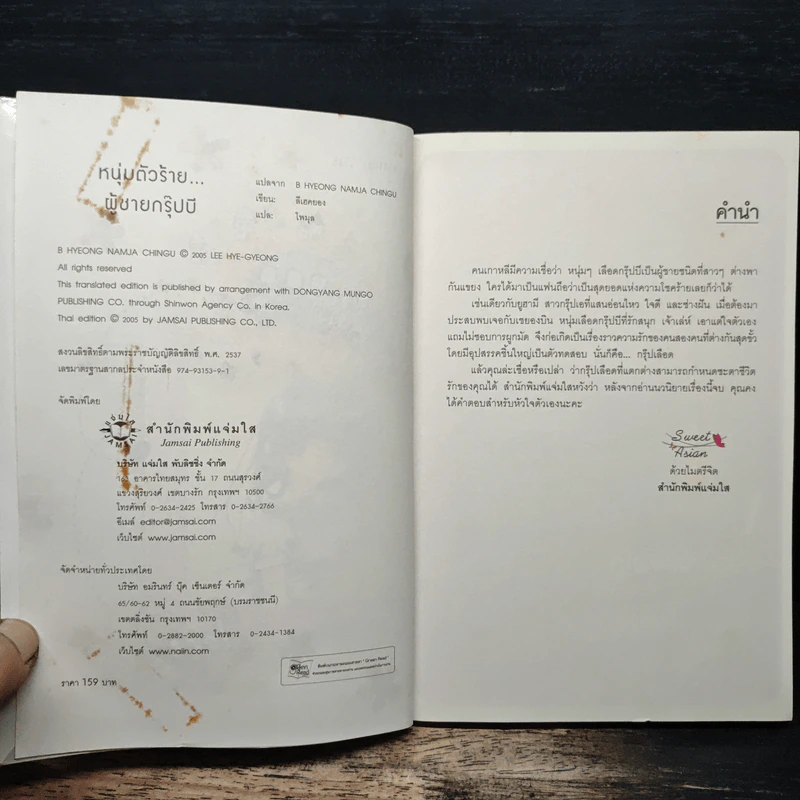 หนุ่มตัวร้าย...
ผู้ชายกรุ๊ปบี
แปลจาก B HYEONG NAMJA CHINGU
เขียน: ลีเฮคยอง
แปล: ไพมุล
B HYEONG NAMJA CHINGU © 2005 LEE HYE-GYEONG
All rights reserved
This translated edition is published by arrangement with DONGYANG MUNGO
PUBLISHING CO. through Shinwon Agency Co. in Korea.
Thai edition © 2005 by JAMSAI PUBLISHING CO., LTD.
สงวนลิขสิทธิ์ตามพระราชบัญญัติลิขสิทธิ์ พ.ศ. 2537
เลขมาตรฐานสากลประจำหนังสือ 974-93153-9-1
จัดพิมพ์โดย
สำนักพิมพ์แจ่มใส
Jamsai Publishing
บริษัท แจ่มใส พับลิชชิ่ง จำกัด
อาคารไทยสมุทร ชั้น 17 ถนนสุรวงศ์
แขวงสุริยวงศ์ เขตบางรัก กรุงเทพฯ 10500
โทรศัพท์ 0-2634-2425 โทรสาร 0-2634-2766
อีเมล์ editor@jamsai.com
เว็บไซต์ www.jamsai.com
จัดจำหน่ายทั่วประเทศโดย
บริษัท อมรินทร์ บุ๊ค เซ็นเตอร์ จำกัด
65/60-62 หมู่ 4 ถนนชัยพฤกษ์ (บรมราชชนนี)
เขตตลิ่งชัน กรุงเทพฯ 10170
โทรศัพท์ 0-2882-2000 โทรสาร 0-2434-1384
เว็บไซต์ www.naiin.com
ราคา 159 บาท
คำนำ
คนเกาหลีมีความเชื่อว่า หนุ่มๆ เลือดกรุ๊ปบีเป็นผู้ชายชนิดที่สาวๆ ต่างพา
กันแขยง ใครได้มาเป็นแฟนถือว่าเป็นสุดยอดแห่งความโชคร้ายเลยก็ว่าได้
เช่นเดียวกับยูฮามี สาวกรุ๊ปเอที่แสนอ่อนไหว ใจดี และช่างฝัน เมื่อต้องมา
ประสบพบเจอกับเยองบิน หนุ่มเลือดกรุ๊ปบีที่รักสนุก เจ้าเล่ห์ เอาแต่ใจตัวเอง
แถมไม่ชอบการผูกมัด จึงก่อเกิดเป็นเรื่องราวความรักของคนสองคนที่ต่างกันสุดขั้ว
โดยมีอุปสรรคชิ้นใหญ่เป็นตัวทดสอบ นั่นก็คือ... กรุ๊ปเลือด
แล้วคุณล่ะเชื่อหรือเปล่า ว่ากรุ๊ปเลือดที่แตกต่างสามารถกำหนดชะตาชีวิต
รักของคุณได้ สำนักพิมพ์แจ่มใสหวังว่า หลังจากอ่านนวนิยายเรื่องนี้จบ คุณคง
ได้คำตอบสำหรับหัวใจตัวเองนะคะ
Sweet
Asian
ด้วยไมตรีจิต
สำนักพิมพ์แจ่มใส